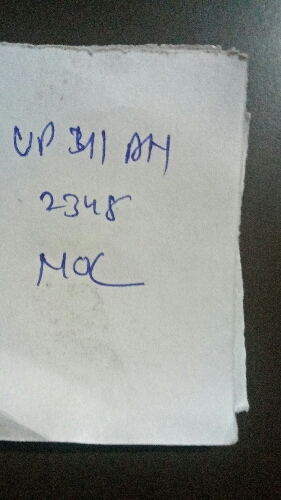 UP 311 AM
2348
MOC